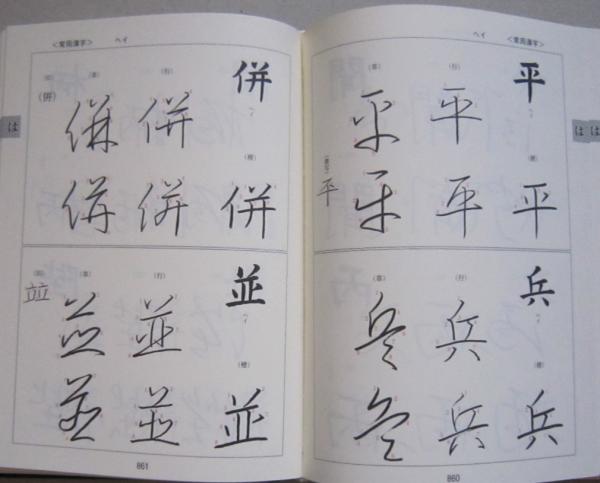 〈常用漢字〉
ヘイ
は
は
平
(楷)
平
(行)
平
平
(草)
平
平
平
兵
(楷)
兵
(行)
兵
兵
(草)
兵
兵
860
〈常用漢字〉
ヘイ
は
併
(楷)
併
(行)
併
併
(草)
併
併
(旧)
(倂)
並
(楷)
並
(行)
並
並
(草)
並
並
(旧)
竝
861